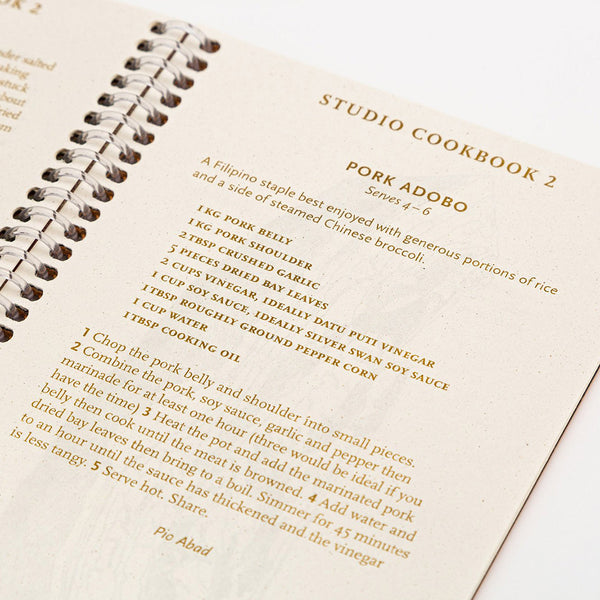 OOK 2
nder salted
aking
stuck
about
ried
rn
STUDIO COOKBOOK 2
PORK ADOBO
Serves 4–6
A Filipino staple best enjoyed with generous portions of rice
and a side of steamed Chinese broccoli.
1 KG PORK BELLY
1 KG PORK SHOULDER
2 TBSP CRUSHED GARLIC
5 PIECES DRIED BAY LEAVES
2 CUPS VINEGAR, IDEALLY DATU PUTI VINEGAR
1 CUP SOY SAUCE, IDEALLY SILVER SWAN SOY SAUCE
1 TBSP ROUGHLY GROUND PEPPER CORN
1 CUP WATER
1 TBSP COOKING OIL
1 Chop the pork belly and shoulder into small pieces.
2 Combine the pork, soy sauce, garlic and pepper then
marinade for at least one hour (three would be ideal if you
have the time) 3 Heat the pot and add the marinated pork
belly then cook until the meat is browned. 4 Add water and
dried bay leaves then bring to a boil. Simmer for 45 minutes
to an hour until the sauce has thickened and the vinegar
is less tangy. 5 Serve hot. Share.
Pio Abad